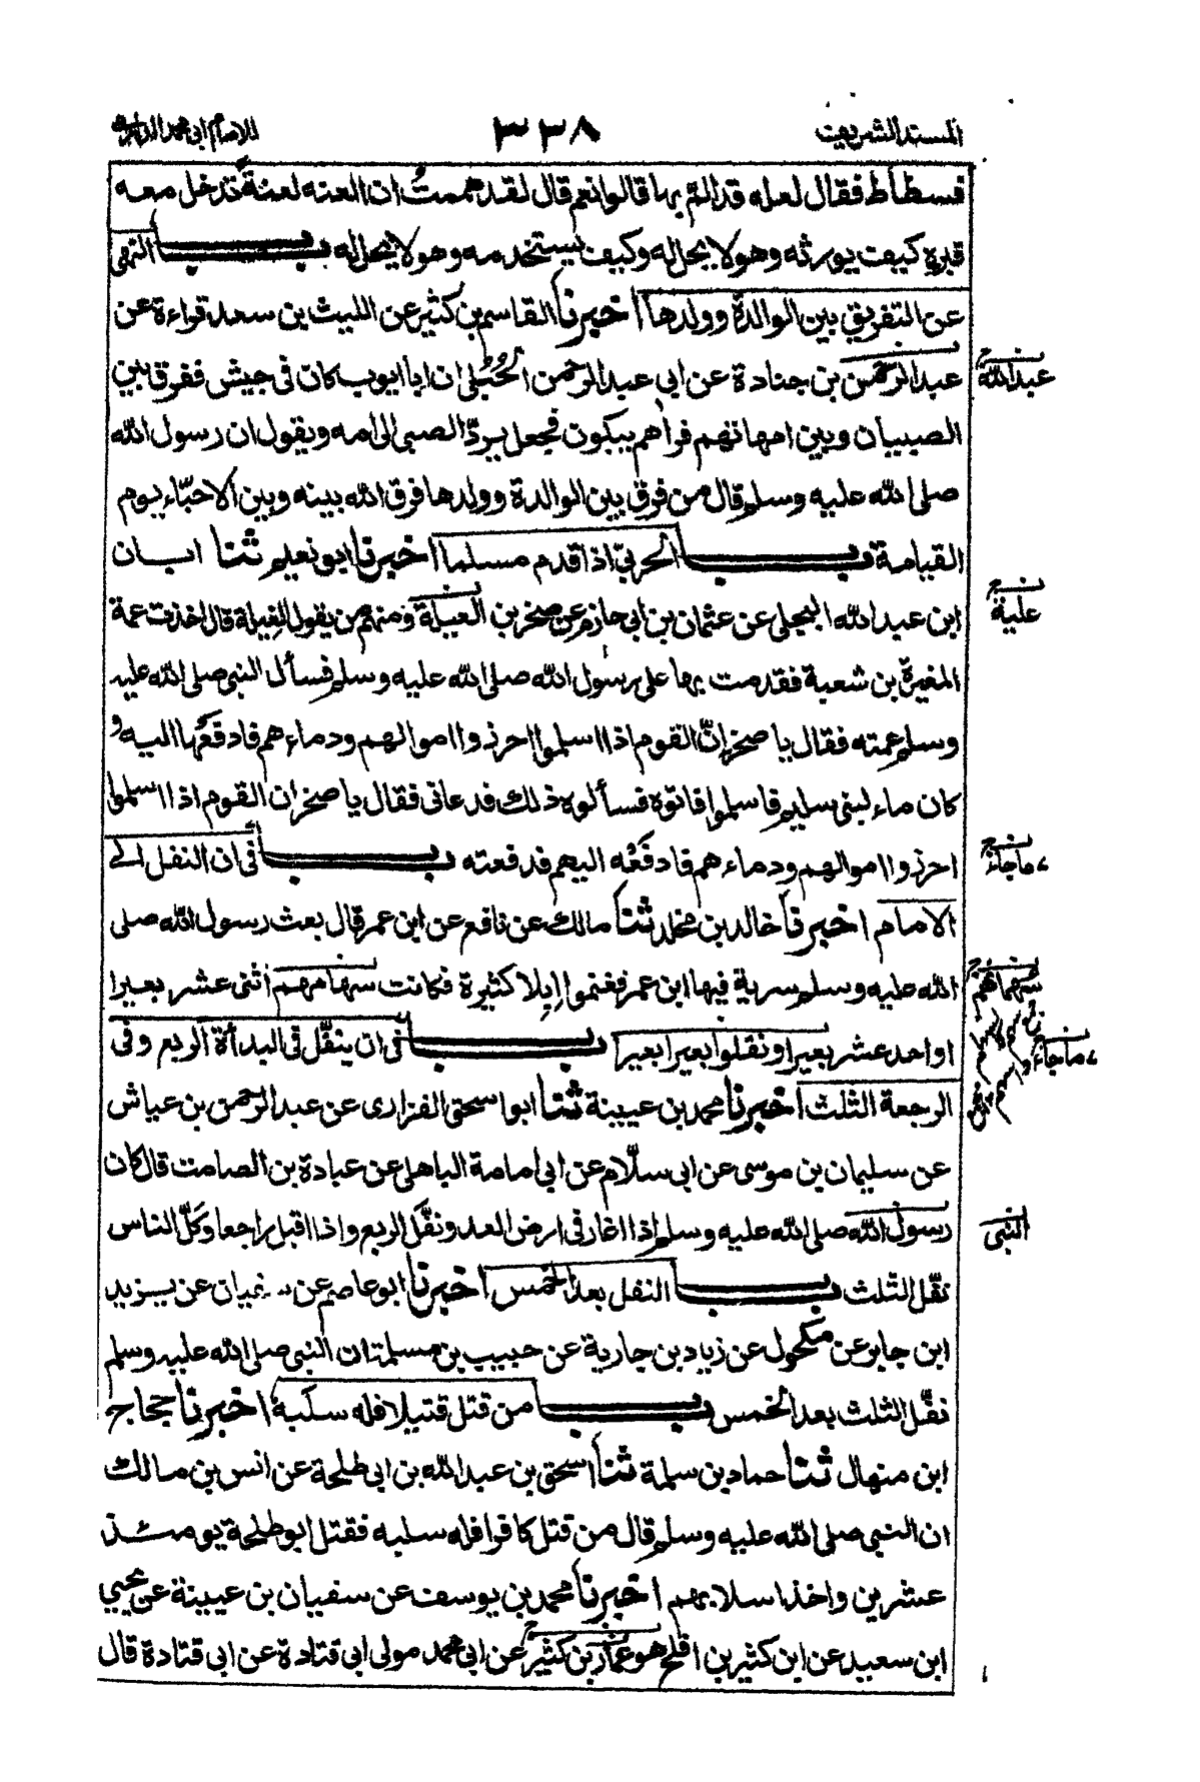 المسند الشريف
٣٣٨
للامام ابى محمد الدارمى
فسطاط فقال لعله قد الم بها قالوا نعم قال لقد هممتُ ان العنه لعنة تدخل معه
قبره كيف يورثه وهو لا يحل له وكيف يستخدمه وهو لا يحل له باب النهى
عن التفريق بين الوالدة وولدها اخبرنا القاسم بن كثير عن الليث بن سعد قراءة عن
عبد الرحمن بن جنادة عن ابى عبد الرحمن الحُبُلى ان ابا ايوب كان فى جيش ففرق بين
نسخ عبد الله
الصبيان وبين امهاتهم فراهم يبكون فجعل يردّ الصبى الى امه ويقول ان رسول الله
صلى الله عليه وسلم قال من فرق بين الوالدة وولدها فرق الله بينه وبين الاحبّاء يوم
القيامة باب الحربىّ اذا قدم مسلما اخبرنا ابو نعيم ثنا ابان
ابن عبد الله البجلى عن عثمان بن ابى حازم عن صخر بن العيلة ومنهم من يقول الغيلة قال اخذت عمة
نسخ علية
المغيرة بن شعبة فقدمت بها على رسول الله صلى الله عليه وسلم فسأل النبى صلى الله عليه
وسلم عمته فقال يا صخر انّ القوم اذا اسلموا احرزوا اموالهم ودماءهم فادفعها اليه و
كان ماء لبنى سليم فاسلموا فاتوه فسألوه ذلك فدعانى فقال يا صخر ان القوم اذا اسلموا
احرزوا اموالهم ودماءهم فادفعه اليهم فدفعته باب فى ان النفل الى
نسخ ما جاء
الامام اخبرنا خالد بن مخلد ثنا مالك عن نافع عن ابن عمر قال بعث رسول الله صلى
الله عليه وسلم سرية فيها ابن عمر فغنموا ابلا كثيرة فكانت سهامهم اثنى عشر بعيرا
نسخ سهمانهم
او احد عشر بعيرا ونفلوا بعيرا بعيرا باب فى ان ينفّل فى البدأة الربع وفى
نسخ ما جاء
الرجعة الثلث اخبرنا محمد بن عيينة ثنا ابو اسحق الفزارى عن عبد الرحمن بن عياش
عن سليمان بن موسى عن ابى سلّام عن ابى امامة الباهلى عن عبادة بن الصامت قال كان
رسول الله صلى الله عليه وسلم اذا اغار فى ارض العدو نفّل الربع واذا اقبل راجعا وكلّ الناس
النبى
نفّل الثلث باب النفل بعد الخمس اخبرنا ابو عاصم عن سفيان عن يزيد
ابن جابر عن مكحول عن زياد بن جارية عن حبيب بن مسلمة ان النبى صلى الله عليه وسلم
نفّل الثلث بعد الخمس باب من قتل قتيلا فله سلبه اخبرنا حجاج
ابن منهال ثنا حماد بن سلمة ثنا اسحق بن عبد الله بن ابى طلحة عن انس بن مالك
ان النبى صلى الله عليه وسلم قال من قتل كافرا فله سلبه فقتل ابو طلحة يومئذ
عشرين واخذ اسلابهم اخبرنا محمد بن يوسف عن سفيان بن عيينة عن يحيى
ابن سعيد عن ابن كثير بن افلح هو عمر بن كثير عن ابى محمد مولى ابى قتادة عن ابى قتادة قال